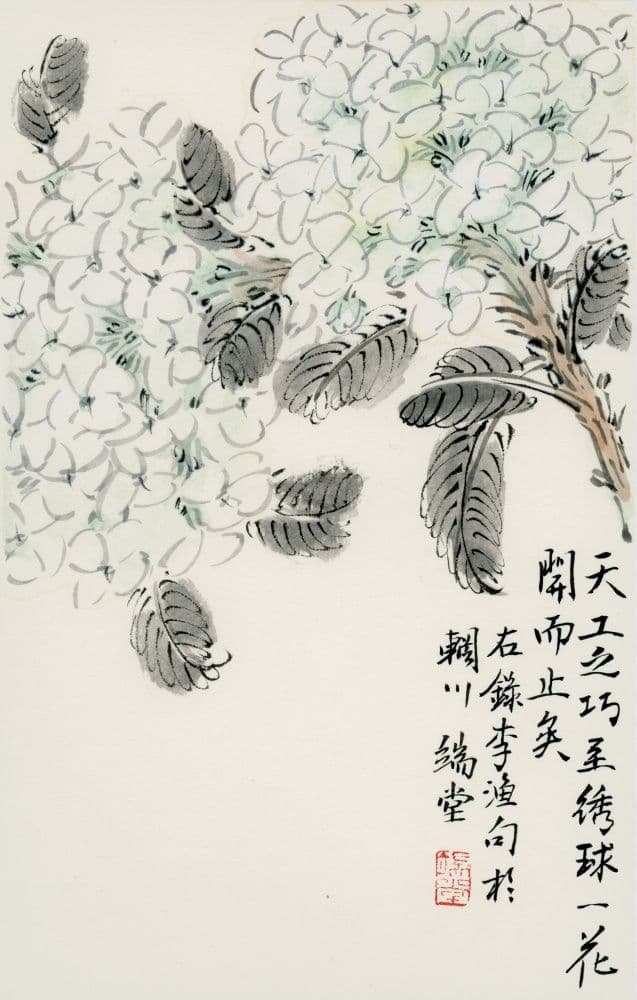 天工之巧至绣球一花
開而止矣
右錄李渔句於
輞川 端堂